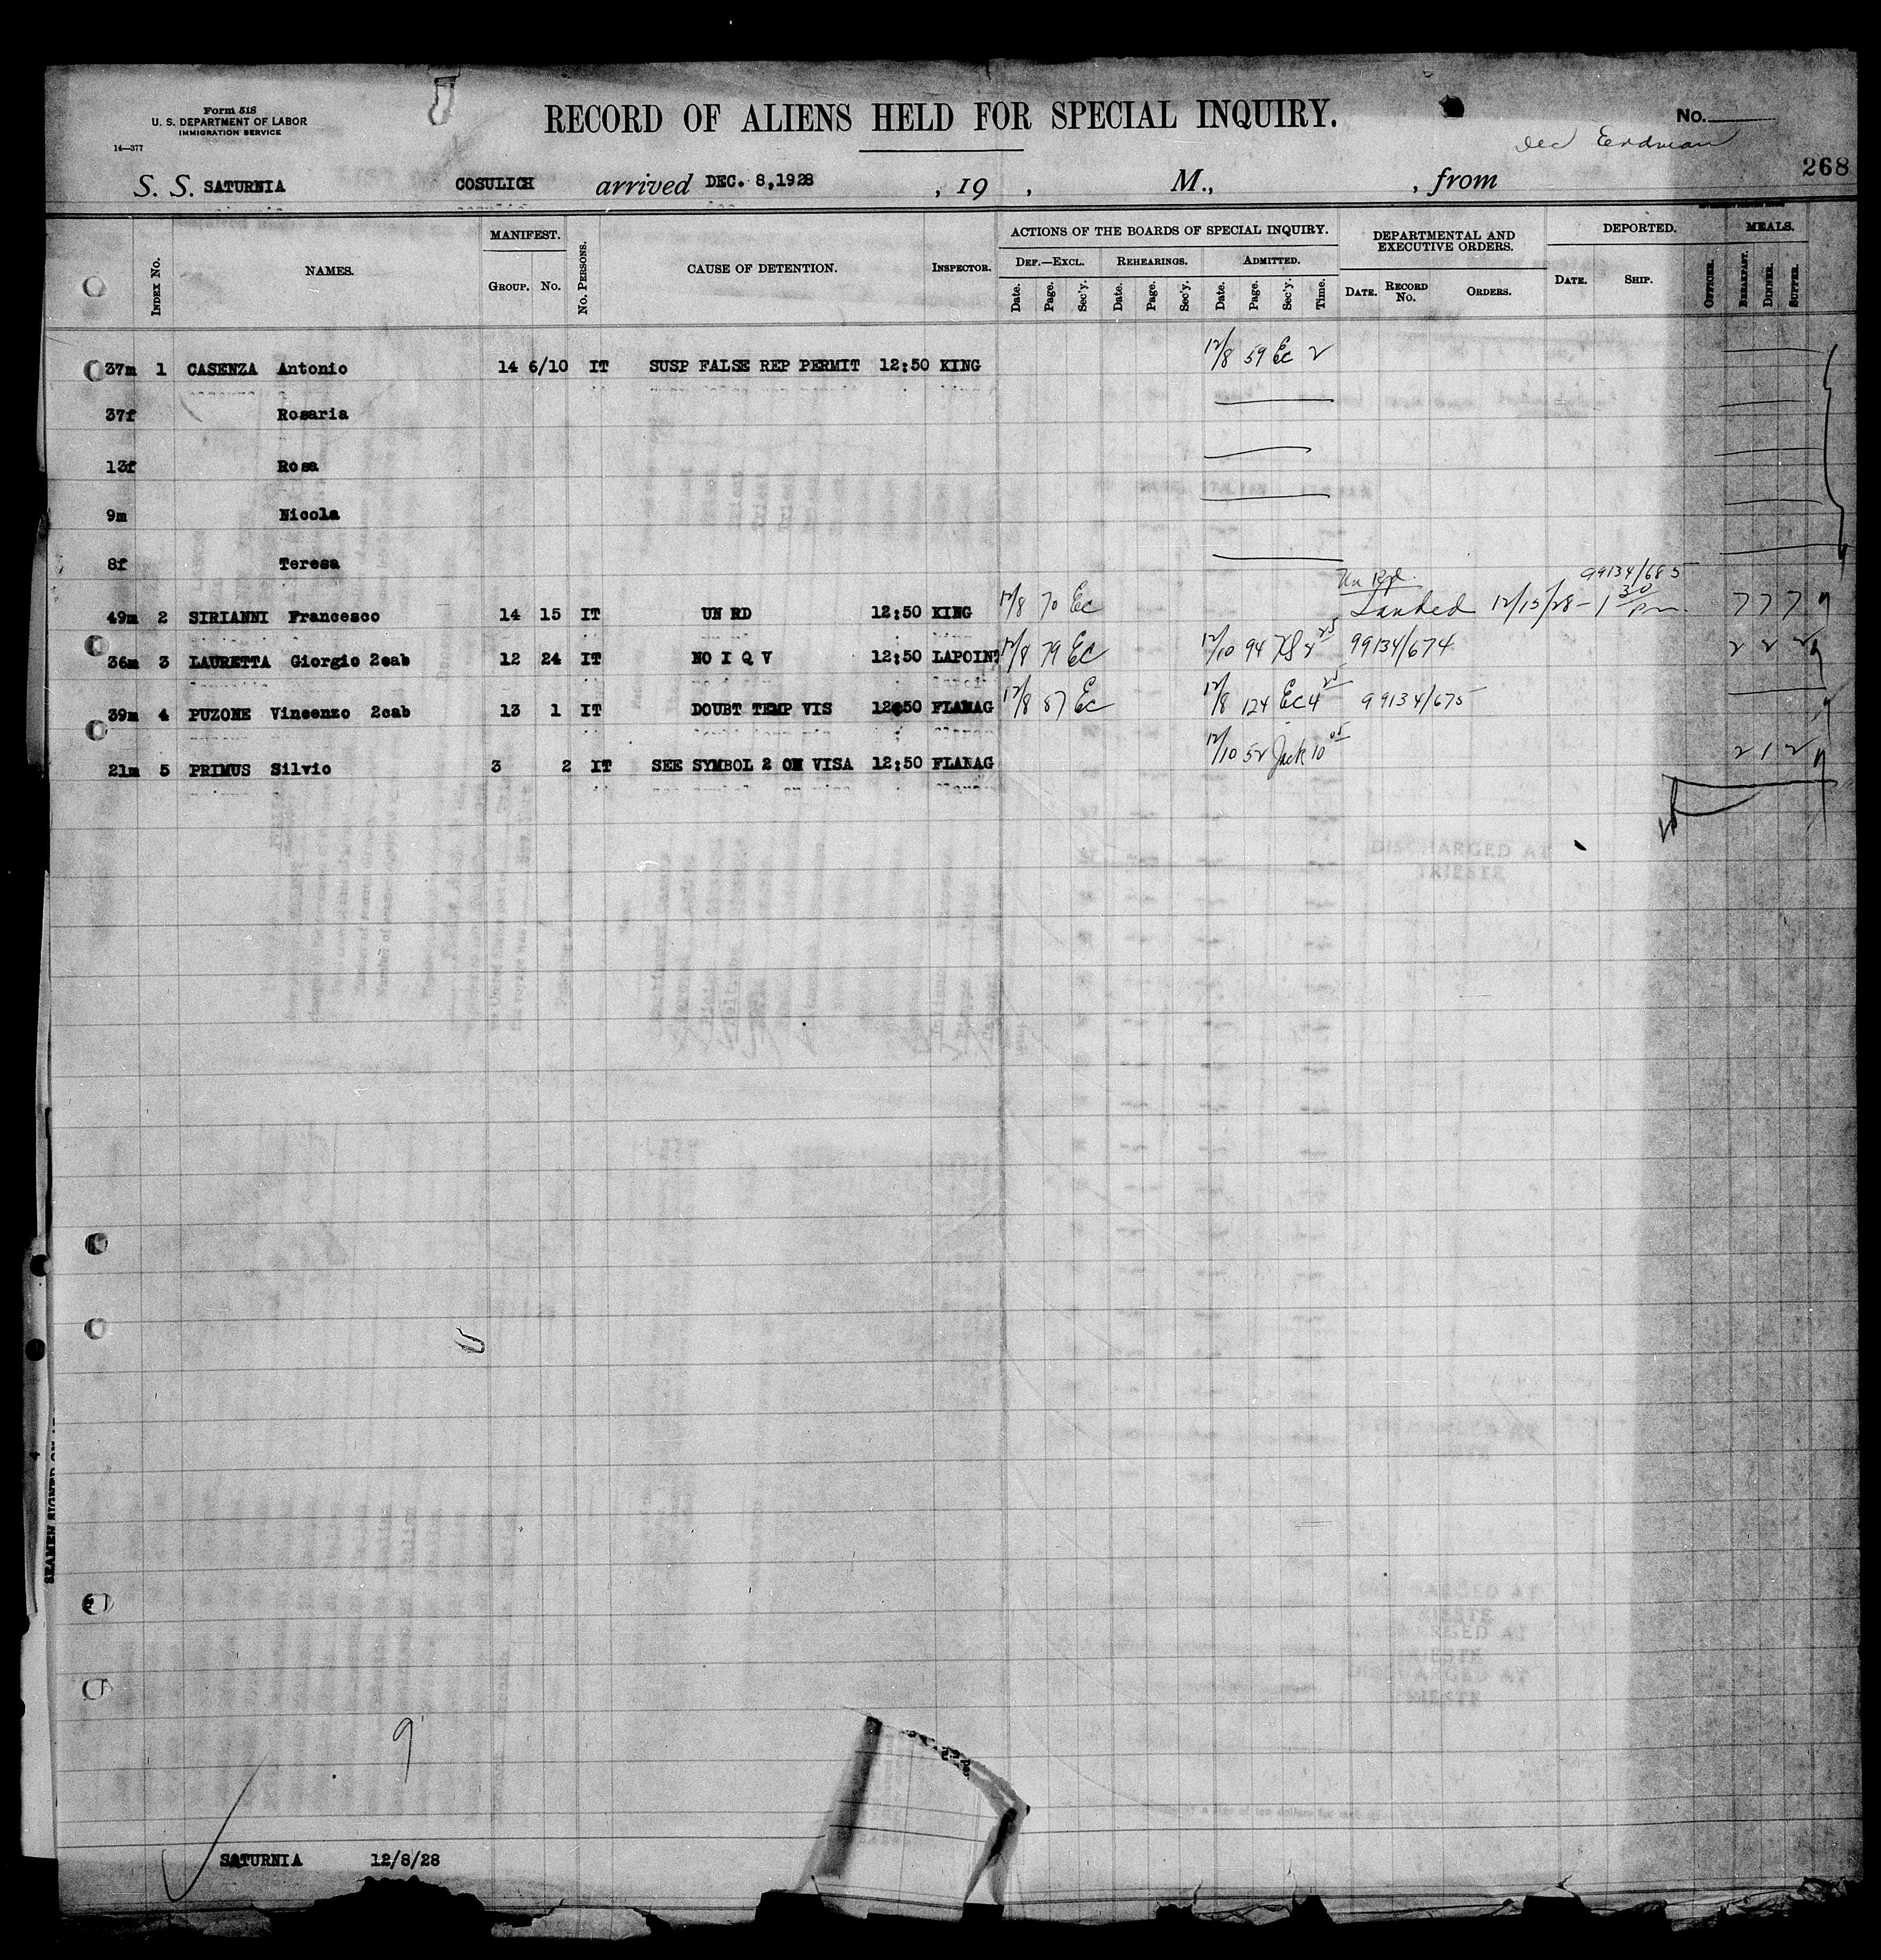 Form 518
U. S. DEPARTMENT OF LABOR
IMMIGRATION SERVICE
14—377
RECORD OF ALIENS HELD FOR SPECIAL INQUIRY.
No.
Erdman
268
S. S. SATURNIA COSULICH arrived DEC. 8,1928 , 19 , M., , from
INDEX No. NAMES. MANIFEST. GROUP. No. No. PERSONS. CAUSE OF DETENTION. INSPECTOR. ACTIONS OF THE BOARDS OF SPECIAL INQUIRY. DEF.—EXCL. Date. Page. Sec'y. REHEARINGS. Date. Page. Sec'y. ADMITTED. Date. Page. Sec'y. Time. DEPARTMENTAL AND EXECUTIVE ORDERS. DATE. RECORD No. ORDERS. DEPORTED. DATE. SHIP. OFFICER. MEALS. BREAKFAST. DINNER. SUPPER.
37m 1 CASENZA Antonio 14 6/10 IT SUSP FALSE REP PERMIT 12:50 KING 12/8 59 Ec 2
37f Rosaria
13f Rosa
9m Nicola
8f Teresa
99134/685
49m 2 SIRIANNI Francesco 14 15 IT UN RD 12:50 KING 12/8 70 Ec Landed 12/15/28 - 1 30 pm. 7 7 7
36m 3 LAURETTA Giorgio 2cab 12 24 IT NO I Q V 12:50 LAPOINT 12/8 79 EC 12/10 94 99134/674 2 2 2
39m 4 PUZONE Vincenzo 2cab 13 1 IT DOUBT TEMP VIS 12:50 FLANAG 12/8 87 Ec 12/8 124 Ec 4 25 99134/675
21m 5 PRIMUS Silvio 3 2 IT SEE SYMBOL 2 ON VISA 12:50 FLANAG 12/10 52 Jack 10 05 2 1 2
DISCHARGED AT
TRIESTE
9
SATURNIA 12/8/28